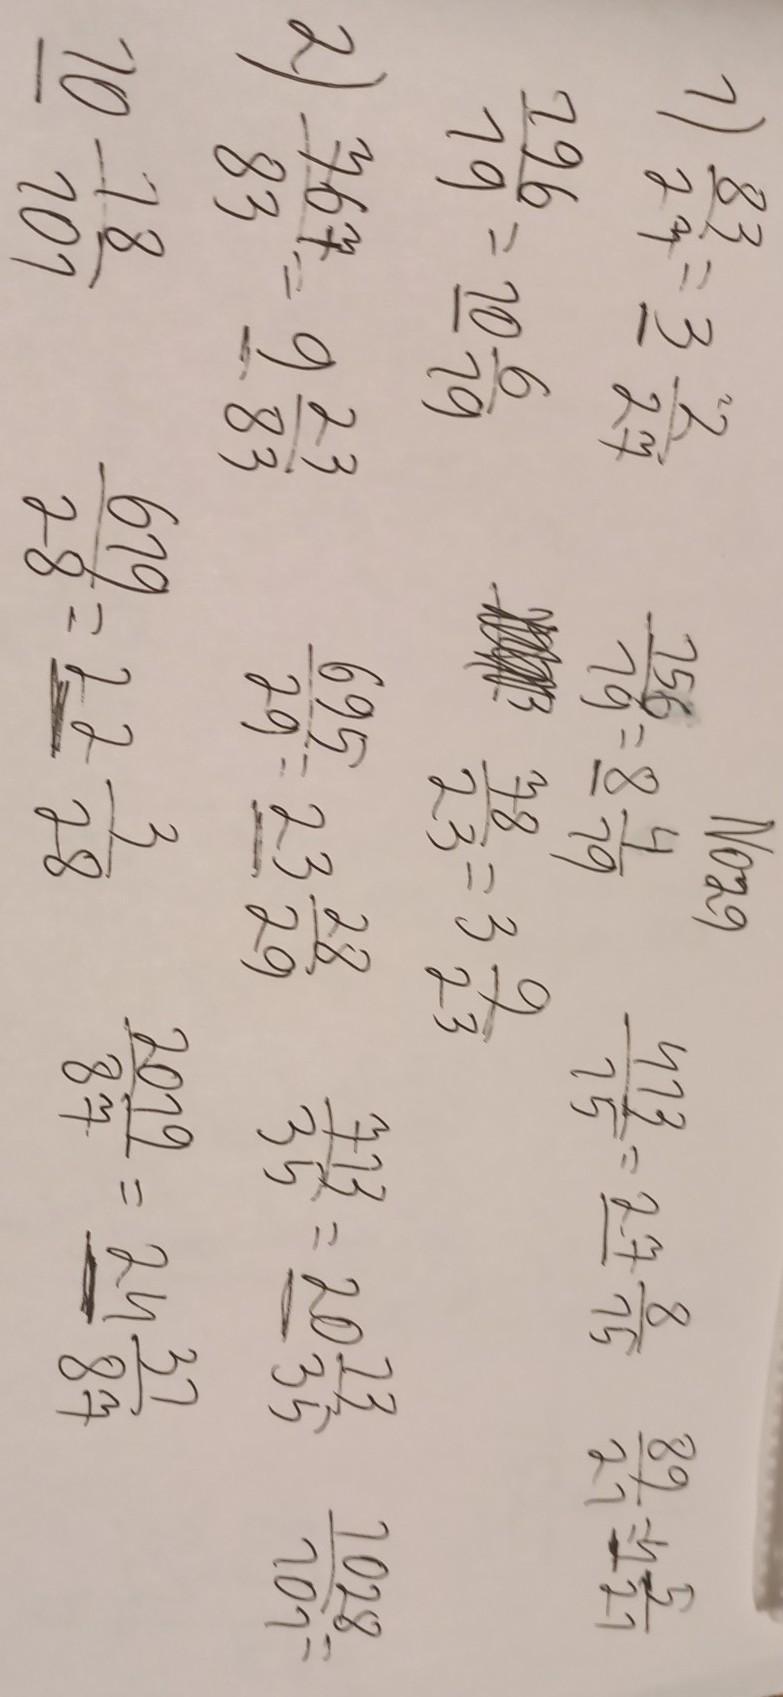 No29
1) 83/27 = 3 2/27 156/19 = 8 4/19 413/15 = 27 8/15 89/21 = 4 5/21
196/19 = 10 6/19 78/23 = 3 9/23
2) 767/83 = 9 23/83 695/29 = 23 28/29 713/35 = 20 13/35 1028/101 =
10 18/101 619/28 = 22 3/28 2019/87 = 24 31/87